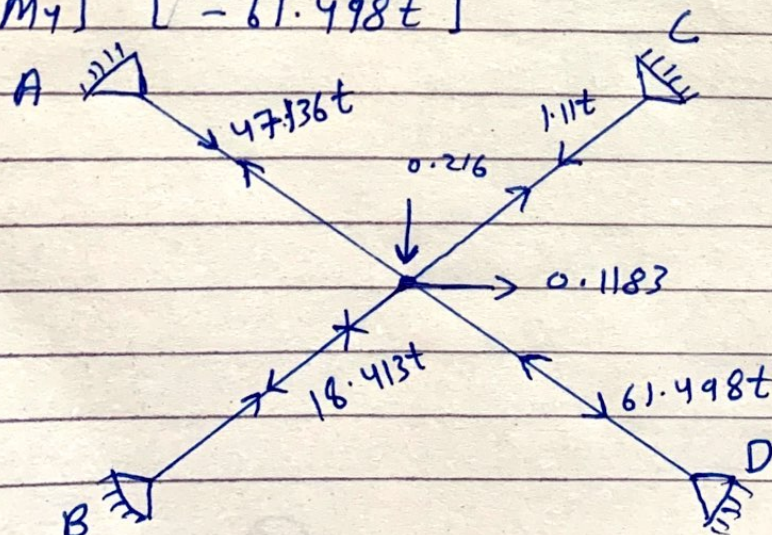 My] [ - 61.498t ]
C
A
47.136t
1.11t
0.216
0.1183
18.413t
61.498t
D
B